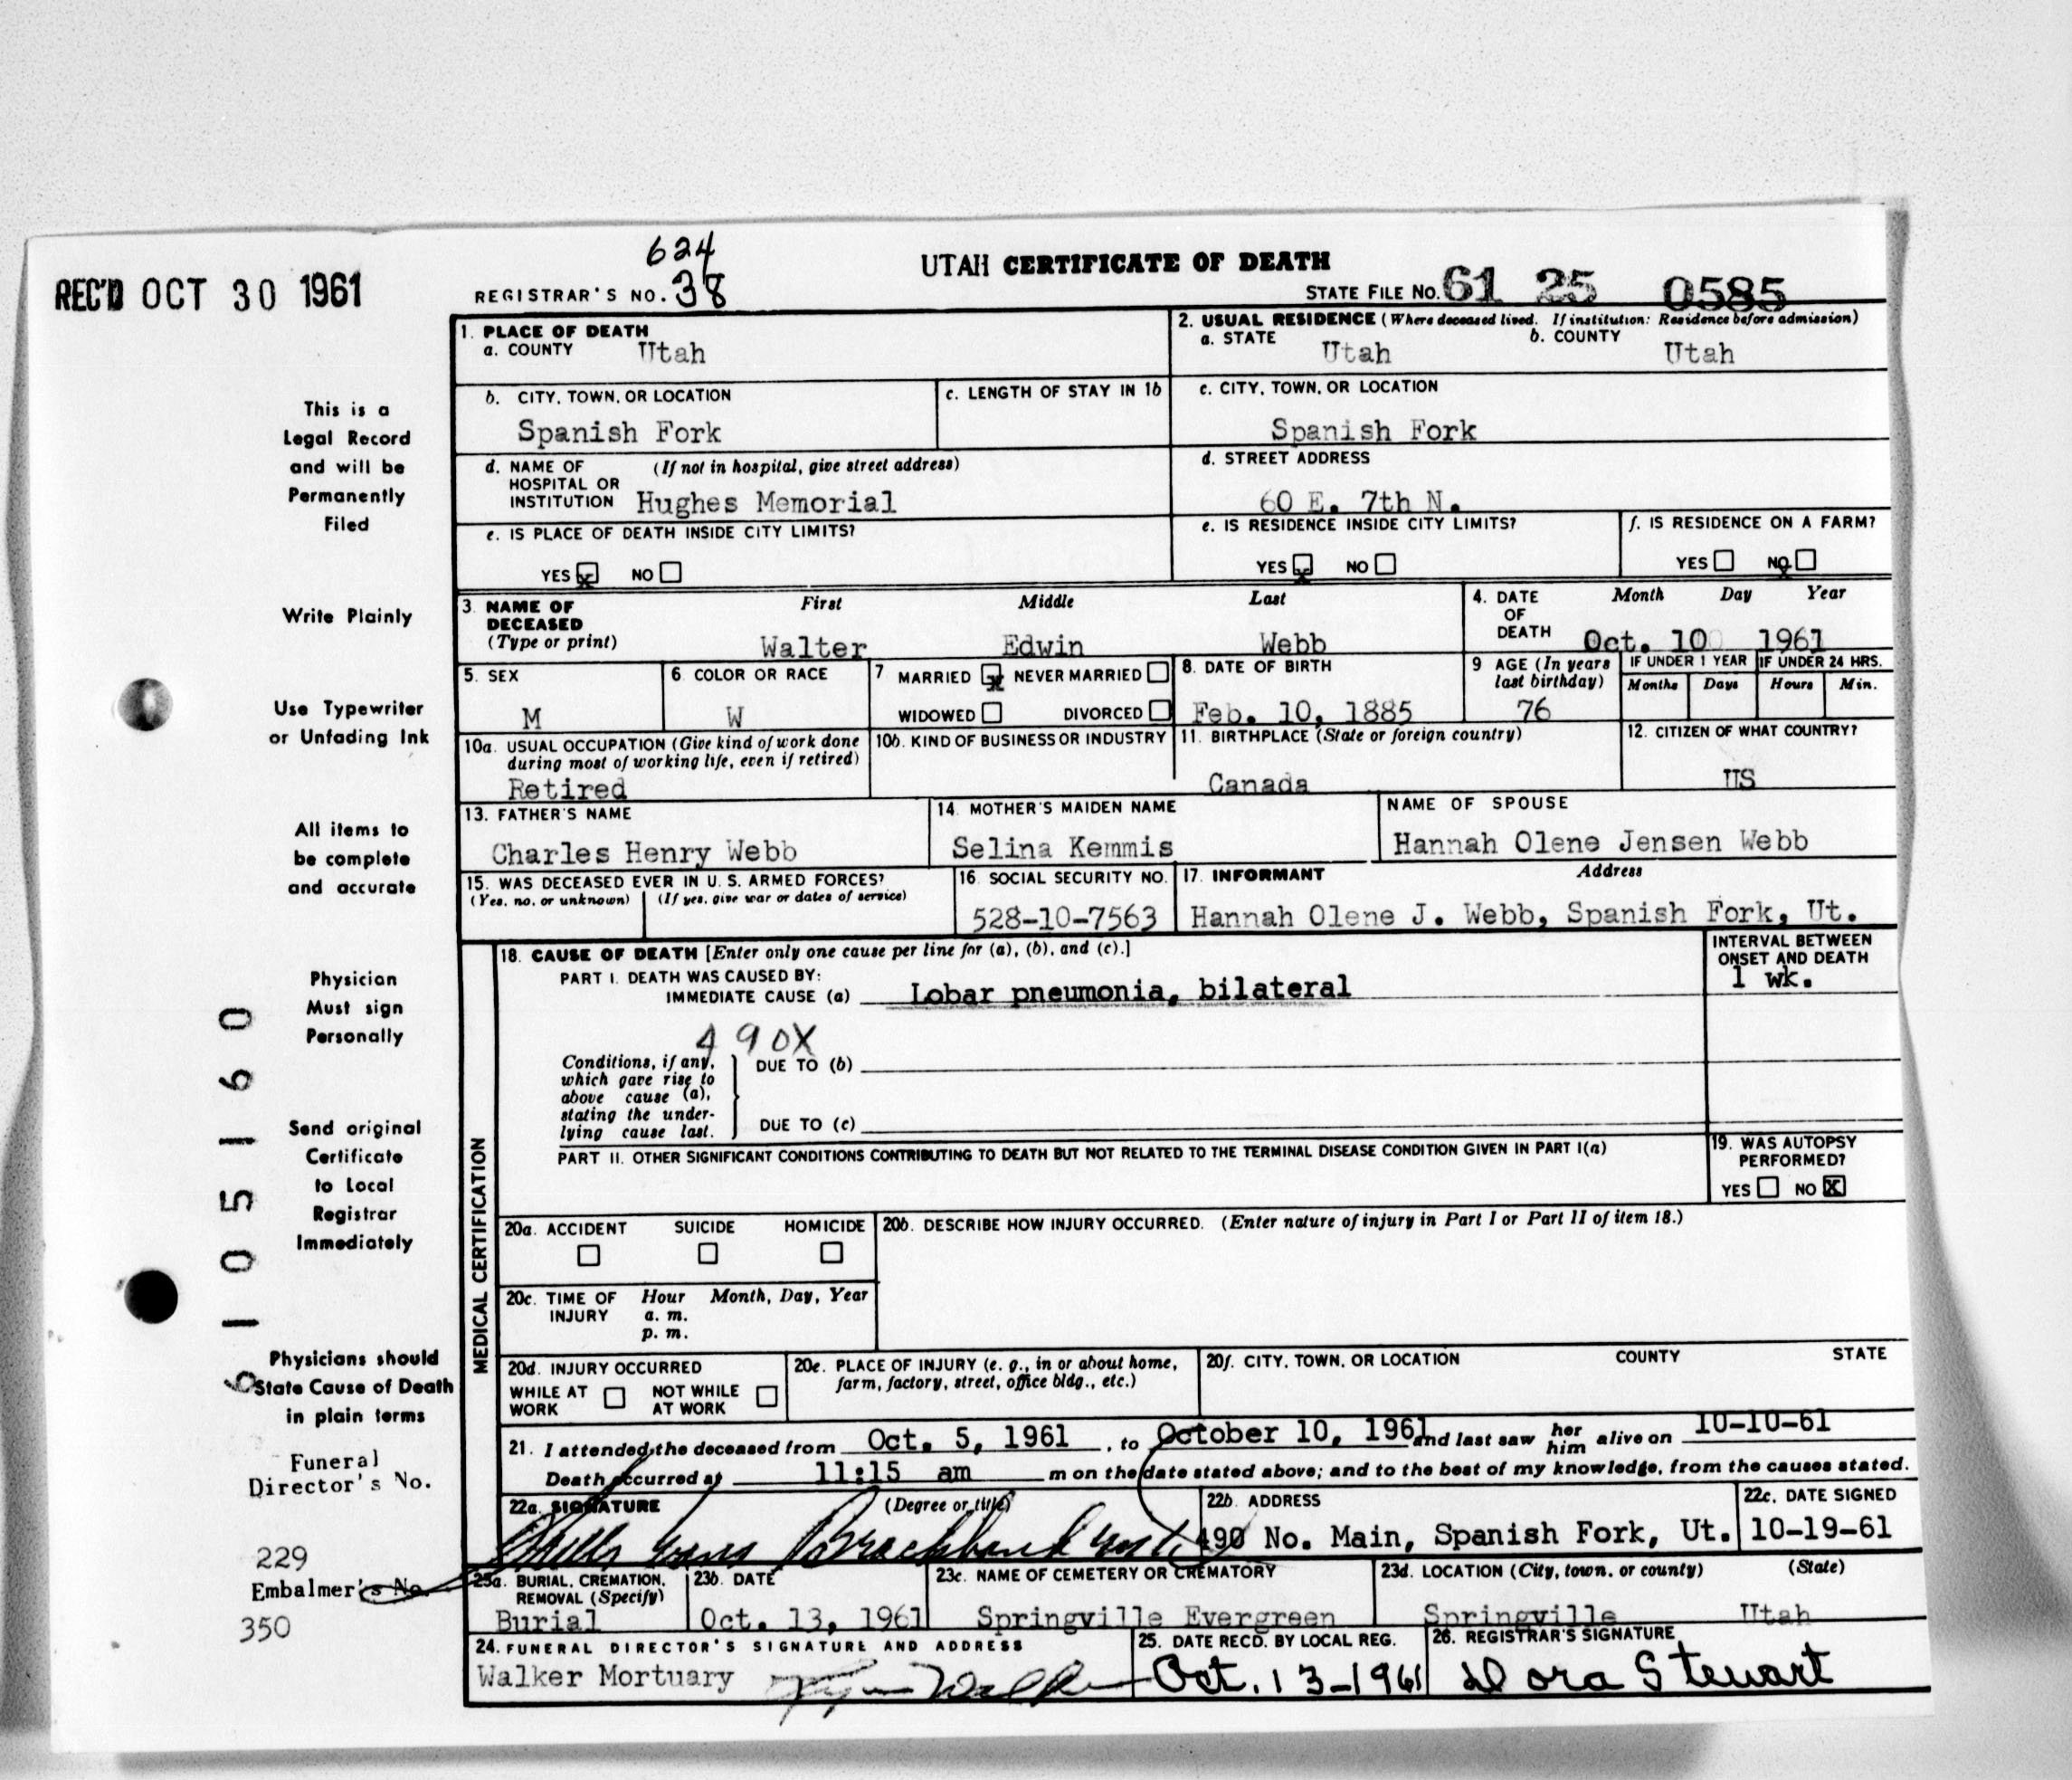 624
REC'D OCT 30 1961
REGISTRAR'S NO. 38
UTAH CERTIFICATE OF DEATH
STATE FILE No. 61 25 0585
This is a
Legal Record
and will be
Permanently
Filed
Write Plainly
Use Typewriter
or Unfading Ink
All items to
be complete
and accurate
Physician
Must sign
Personally
Send original
Certificate
to Local
Registrar
Immediately
Physicians should
State Cause of Death
in plain terms
Funeral
Director's No.
229
Embalmer's No.
350
1. PLACE OF DEATH
a. COUNTY Utah
2. USUAL RESIDENCE (Where deceased lived. If institution: Residence before admission)
a. STATE Utah b. COUNTY Utah
b. CITY, TOWN, OR LOCATION
Spanish Fork
c. LENGTH OF STAY IN 1b
c. CITY, TOWN, OR LOCATION
Spanish Fork
d. NAME OF (If not in hospital, give street address)
HOSPITAL OR
INSTITUTION Hughes Memorial
d. STREET ADDRESS
60 E. 7th N.
e. IS PLACE OF DEATH INSIDE CITY LIMITS?
YES x NO
e. IS RESIDENCE INSIDE CITY LIMITS?
YES x NO
f. IS RESIDENCE ON A FARM?
YES NO x
3. NAME OF DECEASED
(Type or print)
First Middle Last
Walter Edwin Webb
4. DATE OF DEATH
Month Day Year
Oct. 10 1961
5. SEX
M
6. COLOR OR RACE
W
7 MARRIED x NEVER MARRIED
WIDOWED DIVORCED
8. DATE OF BIRTH
Feb. 10, 1885
9 AGE (In years
last birthday)
76
IF UNDER 1 YEAR
Months Days
IF UNDER 24 HRS.
Hours Min.
10a. USUAL OCCUPATION (Give kind of work done
during most of working life, even if retired)
Retired
10b. KIND OF BUSINESS OR INDUSTRY
11. BIRTHPLACE (State or foreign country)
Canada
12. CITIZEN OF WHAT COUNTRY?
US
13. FATHER'S NAME
Charles Henry Webb
14. MOTHER'S MAIDEN NAME
Selina Kemmis
NAME OF SPOUSE
Hannah Olene Jensen Webb
15. WAS DECEASED EVER IN U. S. ARMED FORCES?
(Yes, no, or unknown) (If yes, give war or dates of service)
16. SOCIAL SECURITY NO.
528-10-7563
17. INFORMANT Address
Hannah Olene J. Webb, Spanish Fork, Ut.
MEDICAL CERTIFICATION
18. CAUSE OF DEATH [Enter only one cause per line for (a), (b), and (c).]
PART I. DEATH WAS CAUSED BY:
IMMEDIATE CAUSE (a) Lobar pneumonia, bilateral
INTERVAL BETWEEN
ONSET AND DEATH
1 wk.
490X
Conditions, if any,
which gave rise to
above cause (a),
stating the under-
lying cause last.
DUE TO (b)
DUE TO (c)
PART II. OTHER SIGNIFICANT CONDITIONS CONTRIBUTING TO DEATH BUT NOT RELATED TO THE TERMINAL DISEASE CONDITION GIVEN IN PART I(a)
19. WAS AUTOPSY
PERFORMED?
YES NO X
20a. ACCIDENT SUICIDE HOMICIDE
20b. DESCRIBE HOW INJURY OCCURRED. (Enter nature of injury in Part I or Part II of item 18.)
20c. TIME OF INJURY Hour Month, Day, Year
a. m.
p. m.
20d. INJURY OCCURRED
WHILE AT WORK NOT WHILE AT WORK
20e. PLACE OF INJURY (e. g., in or about home,
farm, factory, street, office bldg., etc.)
20f. CITY, TOWN, OR LOCATION COUNTY STATE
21. I attended the deceased from Oct. 5, 1961, to October 10, 1961 and last saw her him alive on 10-10-61
Death occurred at 11:15 am m on the date stated above; and to the best of my knowledge, from the causes stated.
22a. SIGNATURE (Degree or title)
22b. ADDRESS
490 No. Main, Spanish Fork, Ut.
22c. DATE SIGNED
10-19-61
23a. BURIAL, CREMATION,
REMOVAL (Specify)
Burial
23b. DATE
Oct. 13, 1961
23c. NAME OF CEMETERY OR CREMATORY
Springville Evergreen
23d. LOCATION (City, town, or county) (State)
Springville Utah
24. FUNERAL DIRECTOR'S SIGNATURE AND ADDRESS
Walker Mortuary
25. DATE RECD. BY LOCAL REG.
Oct. 13-1961
26. REGISTRAR'S SIGNATURE
Dora Stewart